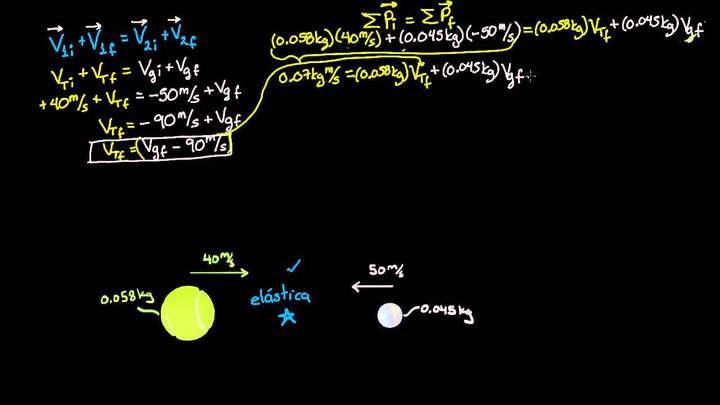 V⃗1i + V⃗1f = V⃗2i + V⃗2f
VTi + VTf = Vgi + Vgf
+40 m/s + VTf = -50 m/s + Vgf
VTf = -90 m/s + Vgf
VTf = (Vgf - 90 m/s)
ΣP⃗i = ΣP⃗f
(0.058kg)(40 m/s) + (0.045kg)(-50 m/s) = (0.058kg)VTf + (0.045kg)Vgf
0.07 kg m/s = (0.058kg)VTf + (0.045kg)Vgf
40 m/s
50 m/s
0.058kg
elástica
0.045kg